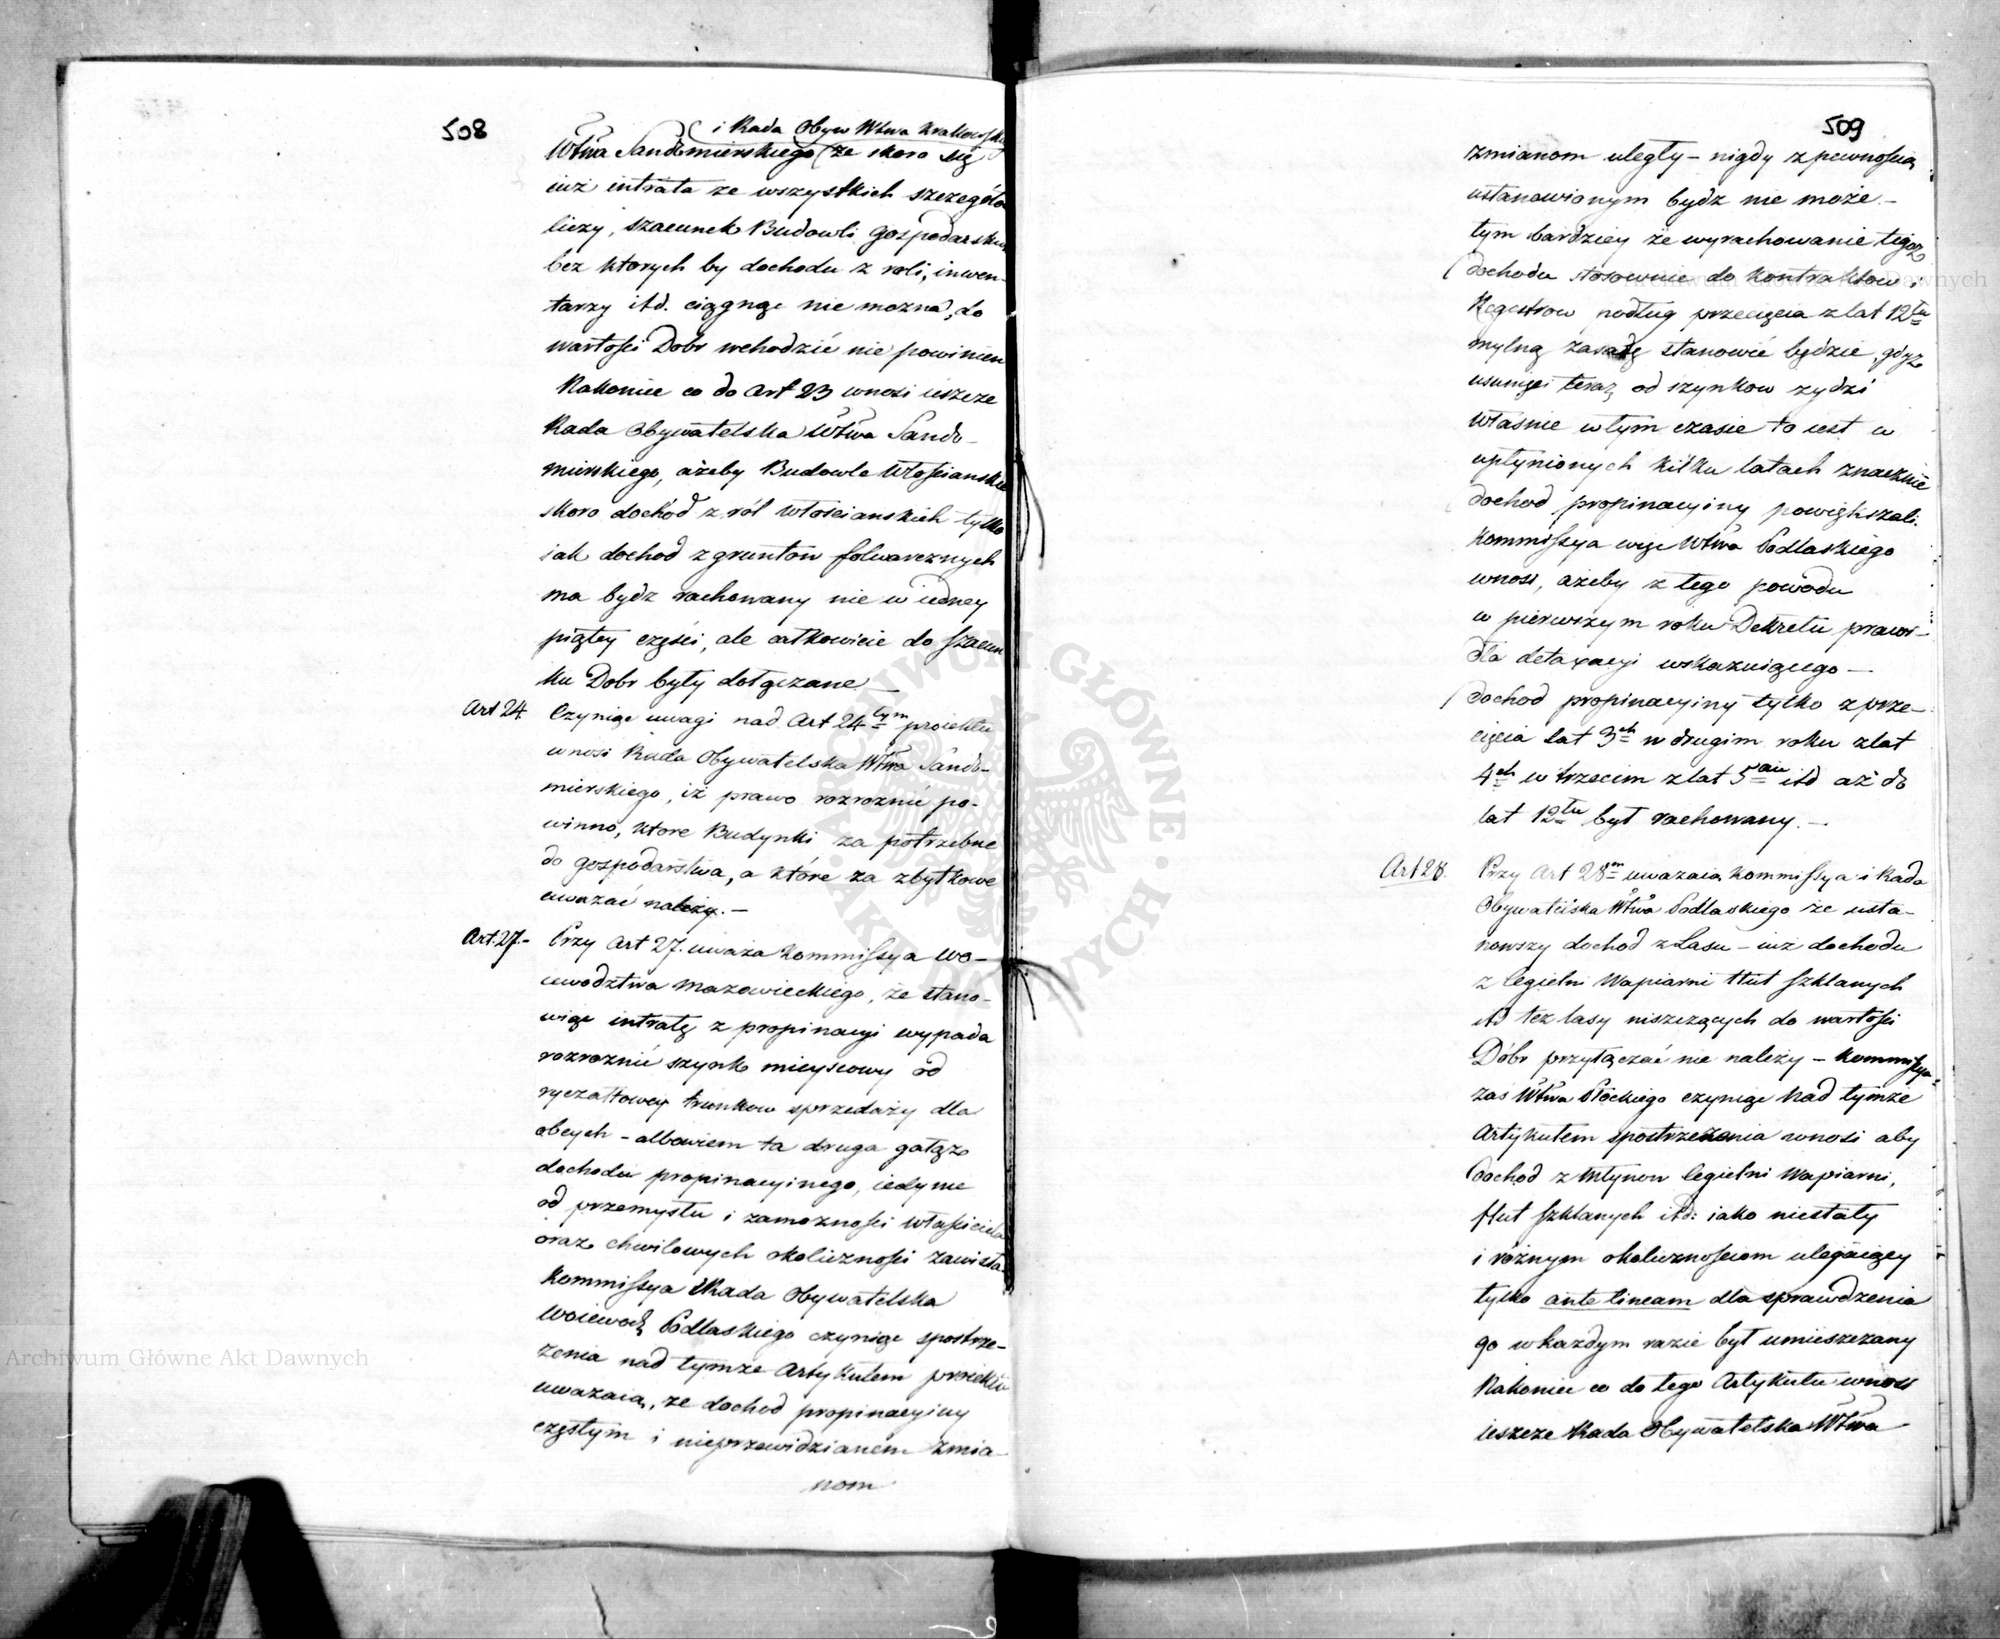 508
i Rada Obyw Wtwa Krakowsk
Wtwa Sandomierskiego (że skoro się
iuż intrata ze wszystkich szczegółow
liczy, szacunek Budowli gospodarskich
bez ktorych by dochodu z roli, inwen-
tarzy itd. ciągnąc nie można, do
wartości Dobr wchodzić nie powinien
Nakoniec co do Art 23 wnosi ieszcze
Rada Obywatelska Wtwa Sando-
mierskiego, ażeby Budowle Włościanskie
skoro dochód z ról włościanskich tylko
jak dochod z gruntów folwarcznych
ma bydz rachowany nie w iedney
piątey części, ale całkowicie do szacun
ku Dobr były dołączane —
Art 24. Czyniąc uwagi nad Art 24tym proiektu
wnosi Rada Obywatelska Wtwa Sando-
mierskiego, iż prawo rozroznić po-
winno, ktore Budynki za potrzebne
do gospodarstwa, a które za zbytkowe
uważać należy. —
Art. 27.- Przy Art 27. uważa Kommissya Wo-
iewodztwa Mazowieckiego, że stano-
wiąc intratę z propinacyi wypada
rozroznić szynk mieyscowy od
ryczałtowey trunkow sprzedaży dla
obcych - albowiem ta druga gałąz
dochodu propinacyinego, iedynie
od przemysłu i zamożności właściciela
oraz chwilowych okoliczności zawisła
Kommissya i Rada Obywatelska
Woiewodz Podlaskiego czyniąc spostrze-
żenia nad tymże Artykułem proiektu
uważaią, że dochod propinacyiny
częstym i nieprzewidzianem zmia-
nom
509
zmianom uległy - nigdy z pewnością
ustanowionym bydz nie może. -
tym bardziey że wyrachowanie tegoz
dochodu stosownie do kontraktow,
Regestrow podług przecięcia z lat 12tu
mylną zasadę stanowić będzie, gdyz
usunięci teraz od szynkow zydzi
właśnie w tym czasie to iest w
upłynionych kilku latach znacznie
dochod propinacyiny powiększali.
Kommissya więc Wtwa Podlaskiego
wnosi, ażeby z tego powodu
w pierwszym roku Dekretu prawo-
dla detaxacyi wskazuiącego —
dochod propinacyiny tylko z prze-
cięcia lat 3ch w drugim roku z lat
4ch w trzecim z lat 5ciu itd aż do
lat 12tu był rachowany. —
Art 28. Przy Art 28m uważaią Kommissya i Rada
Obywatelska Wtwa Podlaskiego że usta-
nowszy dochod z Lasu - iuż dochodu
z Cegielni Wapiarni Hut szklanych
itd też lasy niszczących do wartości
Dóbr przyłączać nie należy - Kommissya
zaś Wtwa Płockiego czyniąc nad tymże
Artykułem spostrzeżenia wnosi aby
dochod z młynow Cegielni Wapiarni,
Hut szklanych itd: iako niestały
i różnym okolicznosciom ulegaiący
tylko ante lineam dla sprawdzenia
go w każdym razie był umieszczany
Nakoniec co do tego Artykułu wnosi
ieszcze Rada Obywatelska Wtwa
Archiwum Główne Akt Dawnych
Archiwum Główne Akt Dawnych
ARCHIWUM GŁÓWNE AKT DAWNYCH